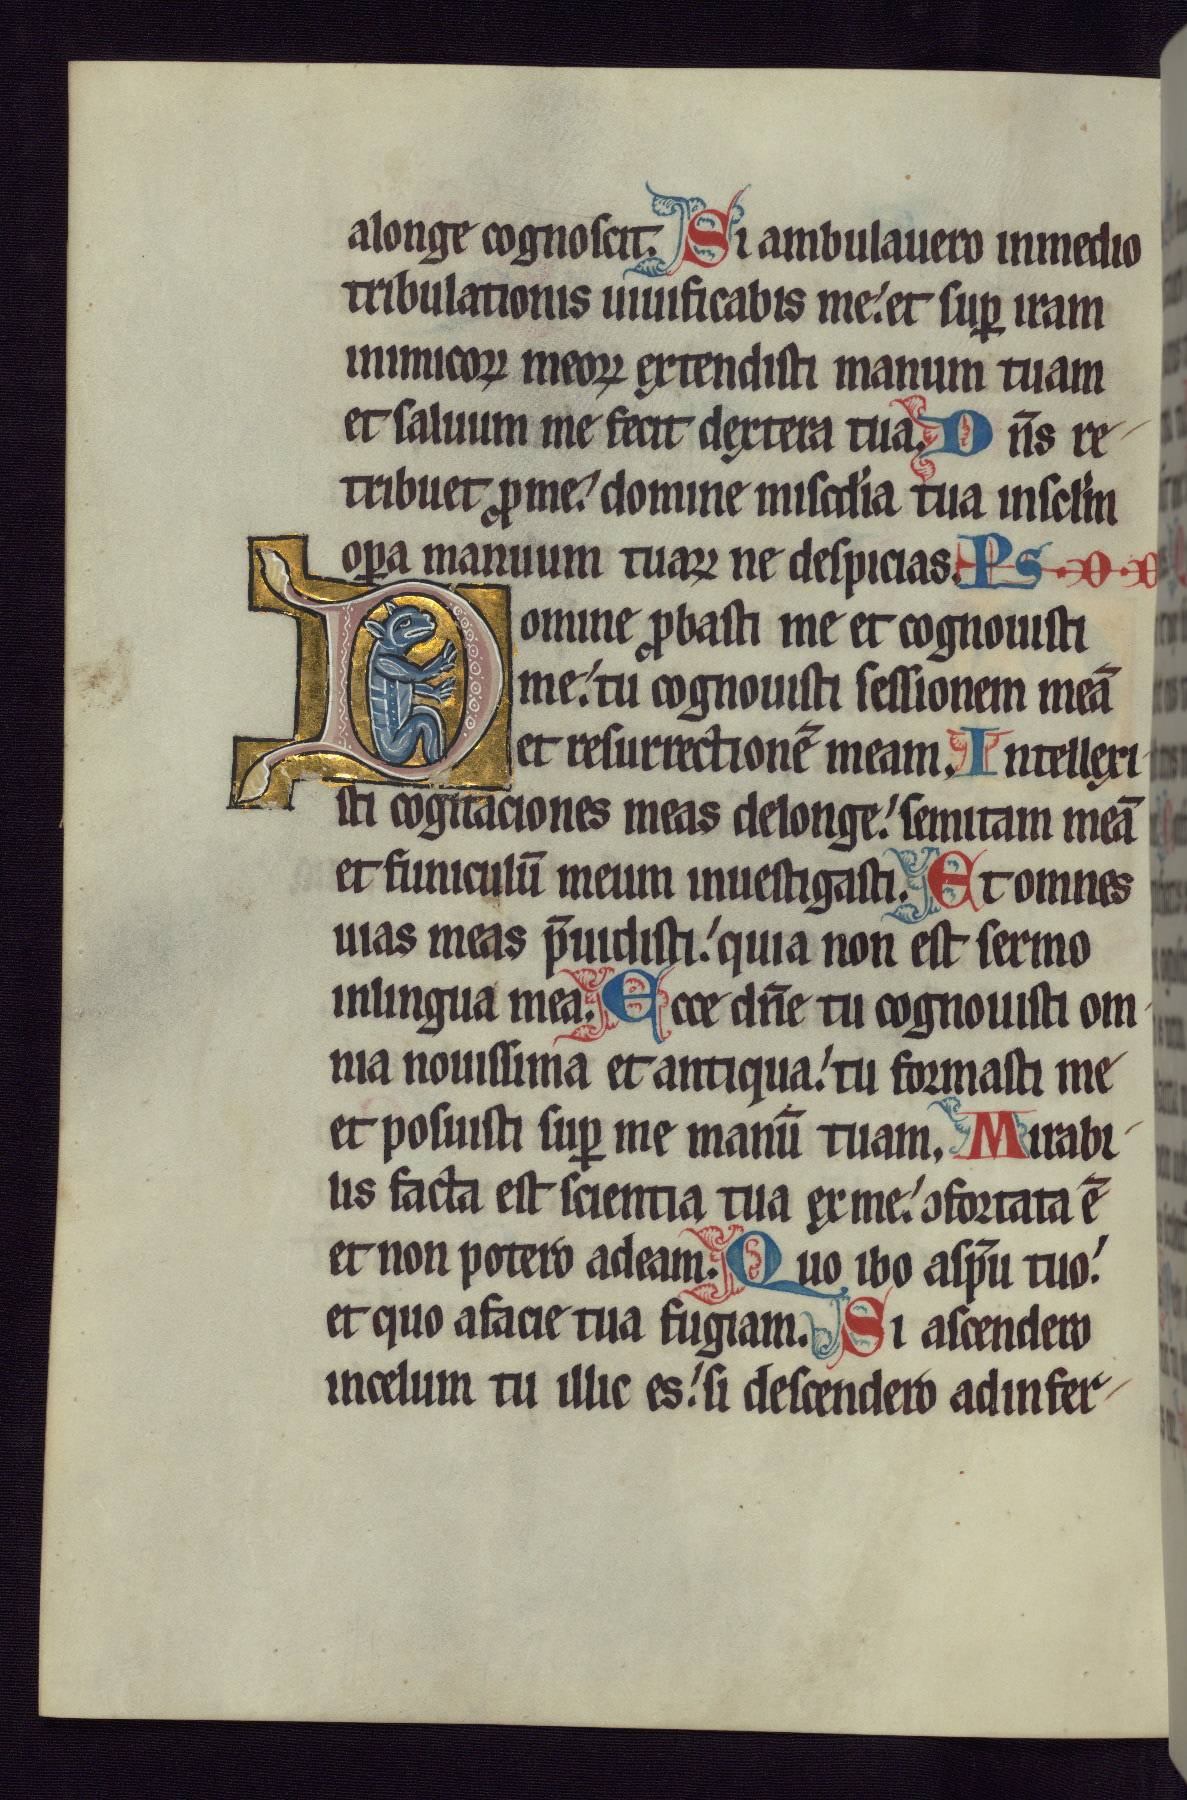 alonge cognoscit. Si ambulauero inmedio
tribulationis uiuificabis me: et suꝑ iram
inimicoꝝ meoꝝ extendisti manum tuam
et saluum me fecit dextera tua. D n̄s re-
tribuet ꝓme: domine misc̄dia tua insclm̄
oꝑa manuum tuaꝝ ne despicias. Ps.
Domine ꝓbasti me et cognouisti
me: tu cognouisti sessionem meā
et resurrectionē meam. Intellexi-
sti cogitaciones meas delonge: semitam meā
et funiculū meum inuestigasti. Et omnes
uias meas p̄uidisti: quia non est sermo
inlingua mea. Ecce dn̄e tu cognouisti om-
nia nouissima et antiqua: tu formasti me
et posuisti suꝑ me manū tuam. Mirabi-
lis facta est scientia tua exme: ↄfortata ē
et non potero adeam. Quo ibo asp̄u tuo:
et quo afacie tua fugiam. Si ascendero
incelum tu illic es: si descendero adinfer-